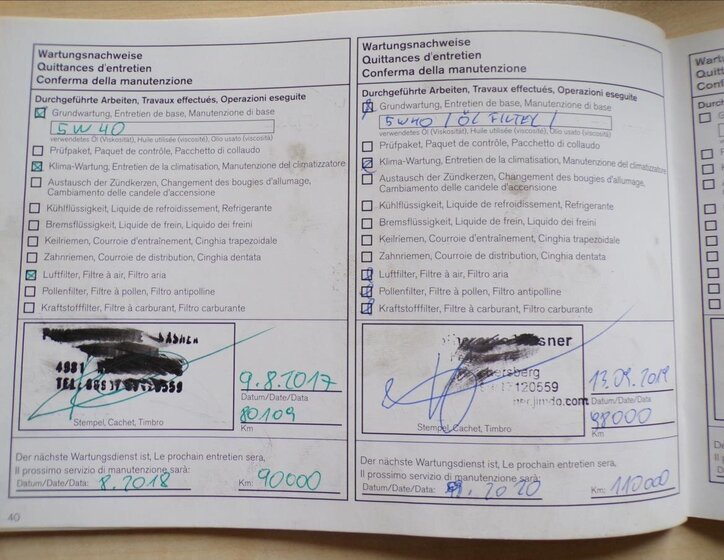 Wartungsnachweise
Quittances d'entretien
Conferma della manutenzione
Durchgeführte Arbeiten, Travaux effectués, Operazioni eseguite
Grundwartung, Entretien de base, Manutenzione di base
5W40
verwendetes Öl (Viskosität), Huile utilisée (viscosité), Olio usato (viscosità)
Prüfpaket, Paquet de contrôle, Pacchetto di collaudo
Klima-Wartung, Entretien de la climatisation, Manutenzione del climatizzatore
Austausch der Zündkerzen, Changement des bougies d'allumage,
Cambiamento delle candele d'accensione
Kühlflüssigkeit, Liquide de refroidissement, Refrigerante
Bremsflüssigkeit, Liquide de frein, Liquido dei freini
Keilriemen, Courroie d'entraînement, Cinghia trapezoidale
Zahnriemen, Courroie de distribution, Cinghia dentata
Luftfilter, Filtre à air, Filtro aria
Pollenfilter, Filtre à pollen, Filtro antipolline
Kraftstofffilter, Filtre à carburant, Filtro carburante
4981
TEL:
9.8.2017
Datum/Date/Data
80109
Stempel, Cachet, Timbro
Km
Der nächste Wartungsdienst ist, Le prochain entretien sera,
Il prossimo servizio di manutenzione sarà:
Datum/Date/Data: 8.2018 Km: 90000
40
Wartungsnachweise
Quittances d'entretien
Conferma della manutenzione
Durchgeführte Arbeiten, Travaux effectués, Operazioni eseguite
Grundwartung, Entretien de base, Manutenzione di base
5W40 / ÖL FILTER /
verwendetes Öl (Viskosität), Huile utilisée (viscosité), Olio usato (viscosità)
Prüfpaket, Paquet de contrôle, Pacchetto di collaudo
Klima-Wartung, Entretien de la climatisation, Manutenzione del climatizzatore
Austausch der Zündkerzen, Changement des bougies d'allumage,
Cambiamento delle candele d'accensione
Kühlflüssigkeit, Liquide de refroidissement, Refrigerante
Bremsflüssigkeit, Liquide de frein, Liquido dei freini
Keilriemen, Courroie d'entraînement, Cinghia trapezoidale
Zahnriemen, Courroie de distribution, Cinghia dentata
Luftfilter, Filtre à air, Filtro aria
Pollenfilter, Filtre à pollen, Filtro antipolline
Kraftstofffilter, Filtre à carburant, Filtro carburante
13.09.2019
Datum/Date/Data
98000
Stempel, Cachet, Timbro
Km
Der nächste Wartungsdienst ist, Le prochain entretien sera,
Il prossimo servizio di manutenzione sarà:
Datum/Date/Data: 9.2020 Km: 110000